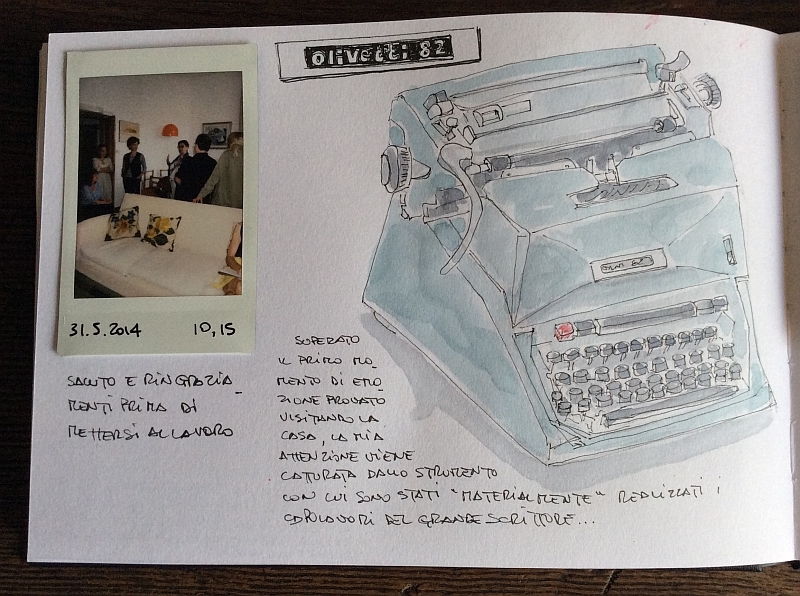 olivetti 82
31.5.2014 10,15
SALUTO E RINGRAZIA-
MENTI PRIMA DI
METTERSI AL LAVORO
SUPERATO
IL PRIMO MO-
MENTO DI EMO-
ZIONE PROVATO
VISITANDO LA
CASA, LA MIA
ATTENZIONE VIENE
CATTURATA DALLO STRUMENTO
CON CUI SONO STATI "MATERIALMENTE" REALIZZATI I
CAPOLAVORI DEL GRANDE SCRITTORE...